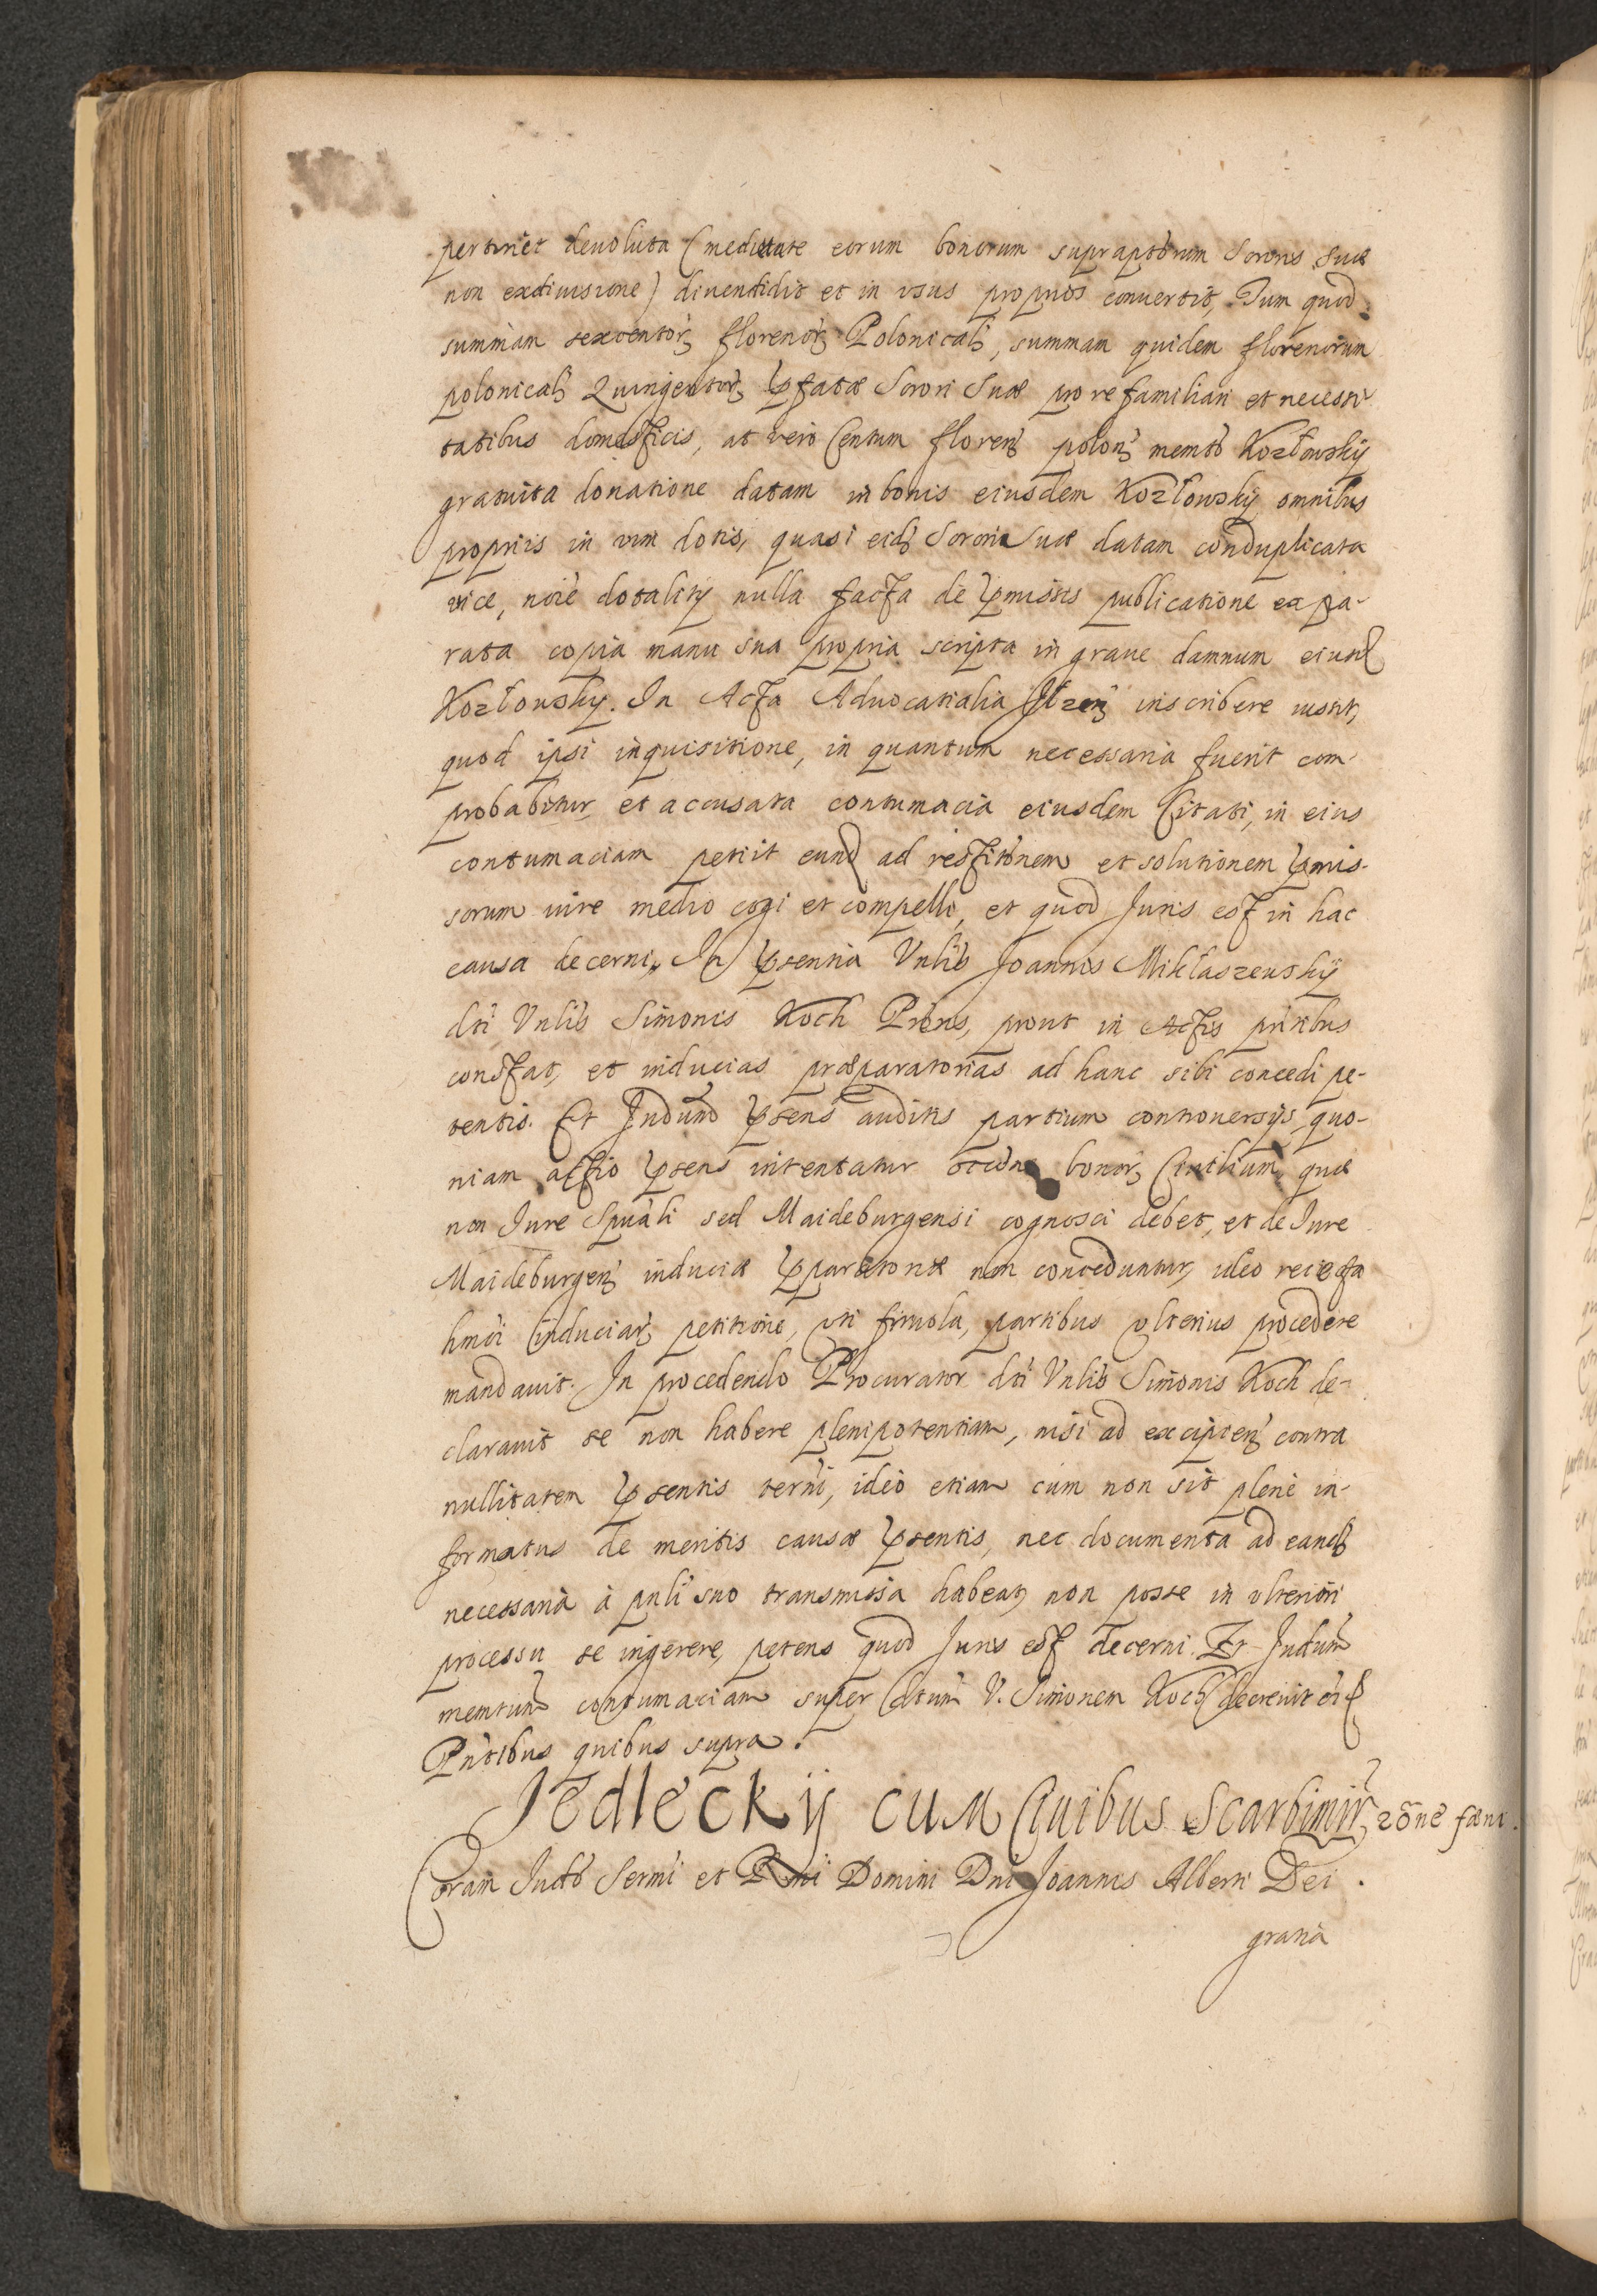 pertinet deuoluta (medietate eorum bonorum supraptorum Sororis suæ
non exdiuisione) diuendidit et in vsus proprios conuertit, Tum quod
summam sexcentorꝫ florenorꝫ Polonicaliꝫ, summam quidem florenorum
polonicaliꝫ Quingentorꝫ p̱fatæ Sorori Suæ pro re familiari et necessi-
tatibus domesticis, at vero Centum florenꝫ polonꝫ memto Kozłowskÿ
gratuita donatione datam in bonis eiusdem Kozłowskÿ omnibus
propriis in vim dotis, quasi eidꝫ Sorori Suæ datam conduplicata
vice, noie dotalitÿ nulla facta de p̱missis publicatione ex pa-
rata copia manu sua propria scripta in graue damnum eiusd
Kozłowsky. In Acta Aduocatialia Ilzenꝫ inscribere iussit,
quod ipsi inquisitione, in quantum necessaria fuerit com-
probabitur, et accusata contumacia eiusdem Citati, in eius
contumaciam petiit eund ad restitonem et solutionem p̱mis-
sorum iure medio cogi et compelli, et quod Juris est in hac
causa decerni. In p̱sentia Vnlis Joannis Mikłaszewskÿ
dti Vnlis Simonis Koch Pribns, prout in Actis pribus
constat, et inducias præparatorias ad hanc sibi concedi pe-
tentis. Et Judiumd p̱sens auditis partium controuersijs, quo-
niam actio p̱sens intentatur bonorꝫ Ciuilium, quæ
non Jure Spuali sed Maideburgensi cognosci debet, et de Jure
Maideburgenꝫ induciæ p̱paratoriæ non conceduntur, ideo reiecta
hmoi induciarꝫ petitione, vti friuola, partibus vlterius procedere
mandauit. In procedendo Procurator dti Vnlis Simonis Koch de-
clarauit se non habere plenipotentiam, nisi ad excipienꝫ contra
nullitatem p̱sentis termi, ideo etiam cum non sit plene in-
formatus de meritis causæ p̱sentis, nec documenta ad eandꝫ
necessaria à pnli suo transmissa habeat, non posse in vlteriori
processu se ingerere, petens quod Juris est decerni. Et Judium
memtum contumaciam super Citatum V. Simonem Koch decreuit
Pntibus quibus supra.
Jedleckÿ cum Ciuibus Scarbimirꝫ rõne fæni.
Coram Judo Sermi et Rmi Domini Dni Joannis Alberti Dei
gratia